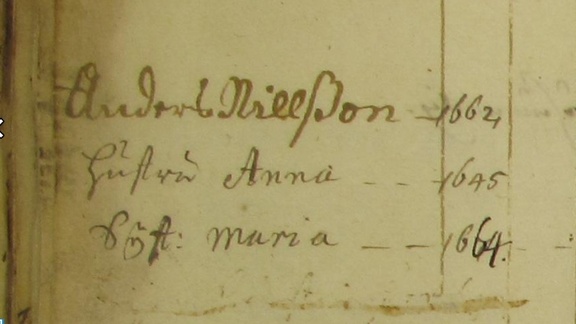 Anders Nillßon - 1662
Hustru Anna - - 1645
Syst: maria - - 1664.